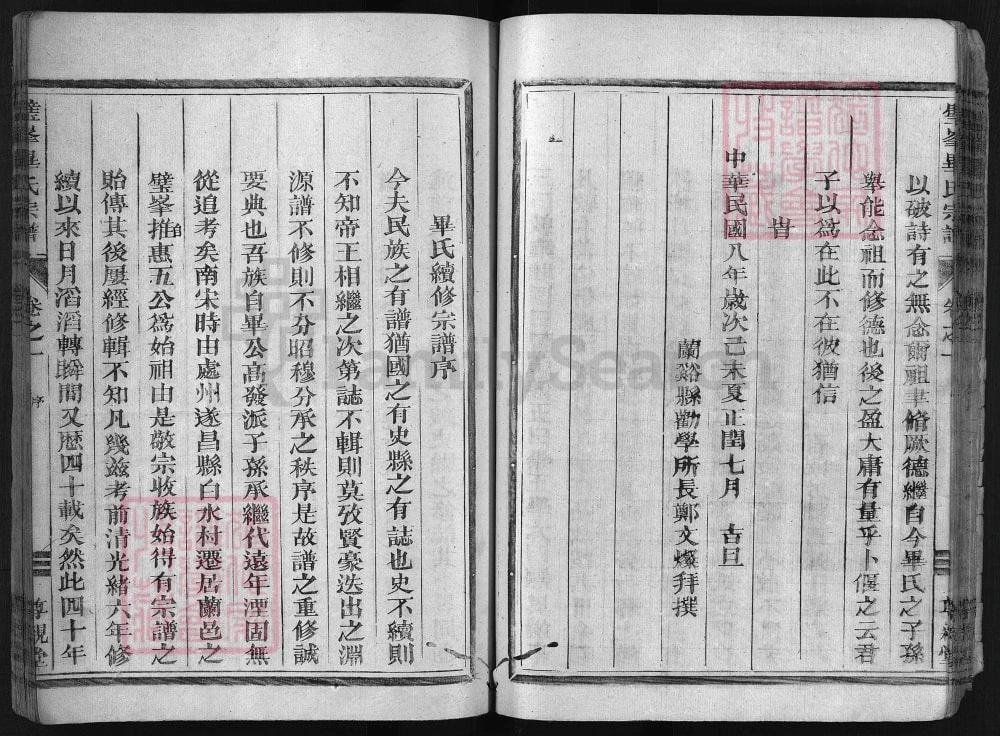 以破詩有之無念爾祖聿脩厥德繼自今畢氏之子孫
舉能念祖而修德也後之盈大庸有量乎卜偃之云君
子以爲在此不在彼猶信
旹
中華民國八年歲次己未夏正閏七月 古旦
蘭谿縣勸學所長鄭文燦拜撰
畢氏續修宗譜序
今夫民族之有譜猶國之有史縣之有誌也史不續則
不知帝王相繼之次第誌不輯則莫攷賢豪迭出之淵
源譜不修則不分昭穆分承之秩序是故譜之重修誠
要典也吾族自畢公高發派子孫承繼代遠年湮固無
從追考矣南宋時由處州遂昌縣白水村遷居蘭邑之
璧峯推惠五公爲始祖由是敬宗收族始得有宗譜之
貽傳其後屢經修輯不知凡幾兹考前清光緒六年修
續以來日月滔滔轉瞬間又歷四十載矣然此四十年
璧峯畢氏宗譜 卷之一 序 尊親堂
FamilySearch